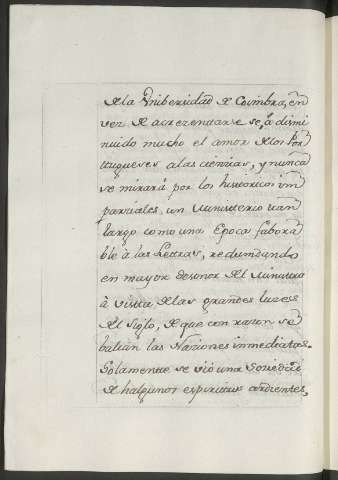 de la Vnibersidad de Coimbra, en
vez de acrezentarse se, á dismi
nuido mucho el amor de los Por
tugueses a las ciencias, y nunca
se mirará por los historicos im
parciales, un Ministerio tan
largo como una Epoca fabora
ble á las Letras, redundando
en mayor desonor del Ministro
á vista de las grandes luzes
del Siglo, de que con razon se
balian las Naziones inmediatas.
Solamente se vió una Soziedad
de halgunos espiritus ardientes,